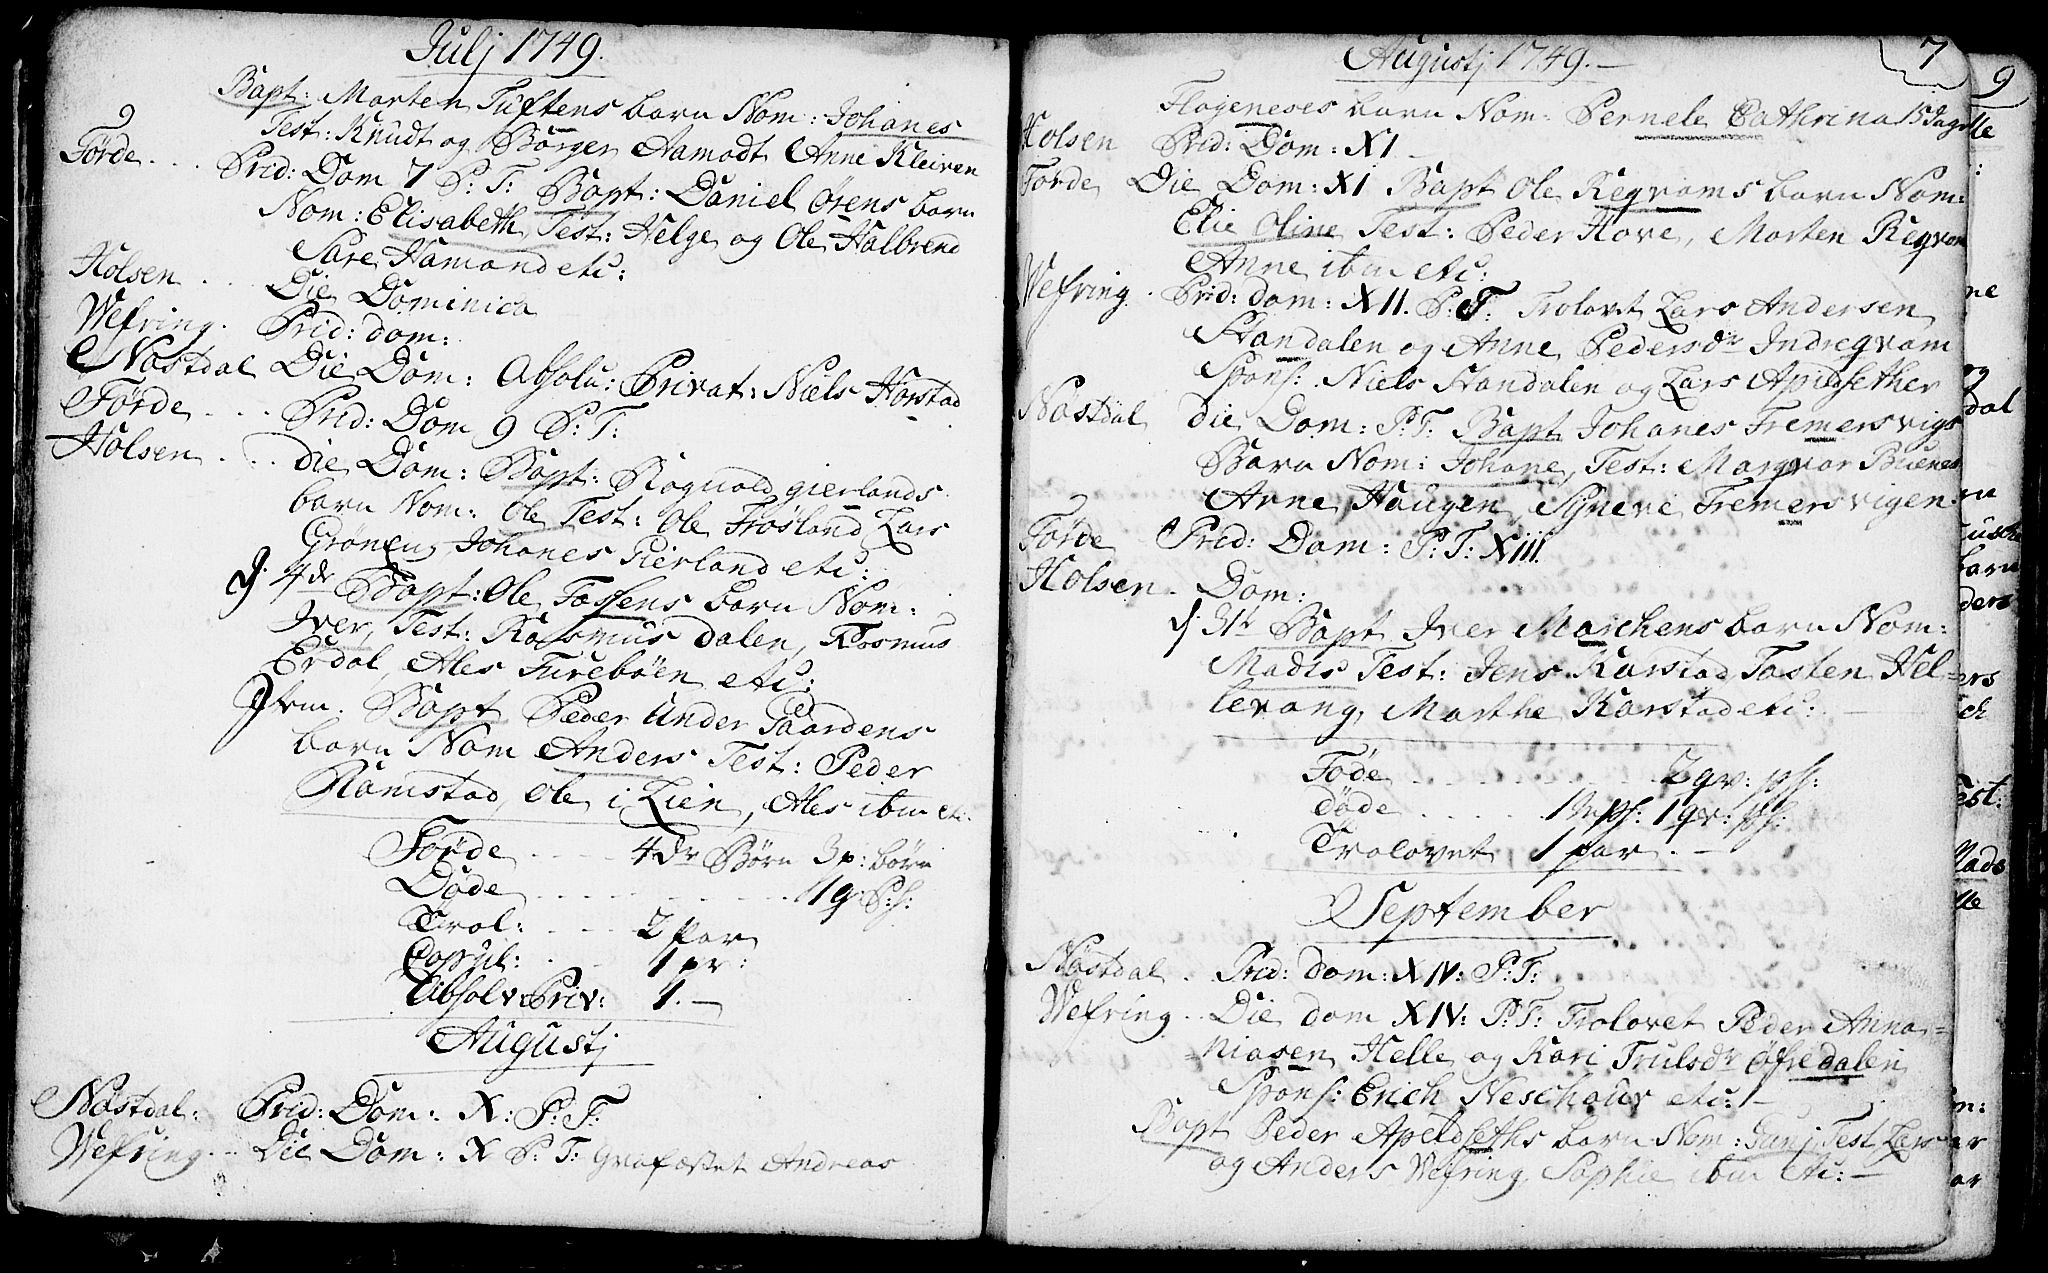 Julj 1749.
Bapt: Morten Tuftens barn Nom: Johanes
Test: Knudt og Børger Aamodt Anne Kleiven
Førde... Prid: Dom 7 P: T: Bapt: Daniel Ørens barn
Nom: Elisabeth Test: Helge og Ole Halbrend
Sare Hamand etc:
Holsen... Die Dominica
Wefring. Prid: dom:
Nøstdal Die Dom: Absolu: Privat: Niels Horstad
Førde... Prid: Dom 9 P: T:
Holsen... Die Dom: Bapt: Rognald gierlands
barn Nom: Ole Test: Ole Frøsland Lars
Grønen, Johanes Gierland etc:
J. 4dr Bapt: Ole Fossens barn Nom:
Iver, Test: Rasmus dalen, Rasmus
Erdal, Ales Furebøen etc:
Jtem. Bapt Peder Under Gaardens
barn Nom Anders Test: Peder
Ramstad, Ole i Lien, Ales ibm etc:
Førde.... 4dr Børn 3 p: børn
Døde.......... 1 q P:s:
Trol:..... 2 par
Copul:.... 1 pr:
Absolv: Priv: 1.—
Augustj
Nøstdal: Prid: Dom: X: P: T:
Wefring... Die Dom: X P: T: Grafæstet Andreas
Augustj 1749.—
7
9
Flageneses barn Nom: Pernele Cathrina
Holsen Prid: Dom: XI
Førde Die Dom: XI Bapt Ole Reqvams barn Nom:
Elie Oline Test: Peder Hove, Morten Reqvam
Anne ibm etc:
Wefring. Prid: dom: XII. P: T: Trolovet Lars Andersen
Standalen og Anne Pedersdr Indreqvam
Spons: Niels Standalen og Lars Apeldsether
Nøstdal Die Dom: P: T: Bapt Johanes Fremersvigs
Barn Nom: Johane, Test: Marqvar Buenes
Arne Haugen, Signeve Fremersvigen:
Førde Prid: Dom: P: T: XIII.
Holsen. Dom:
J. 31t Bapt Iver Moschens barn Nom:
Madis Test: Jens Karstad Tosten Hel-
levang, Marthe Karstad etc:—
Føde....... 2 qv: ps:
døde..... 1 M ps: 1 qv: ps:
Trolovet 1 par.—
September
Nøstdal. Prid: dom: XIV: P: T:
Wefring.. Die dom XIV: P: T: Trolovet Peder Anna-
niasen Helle og Kari Trulsdr Øfredalen
Spons: Erich Neschouv etc:—
Bapt Peder Apeldseths barn Nom: Gunj Test Lars
og Anders Wefring, Sophie ibm etc:—